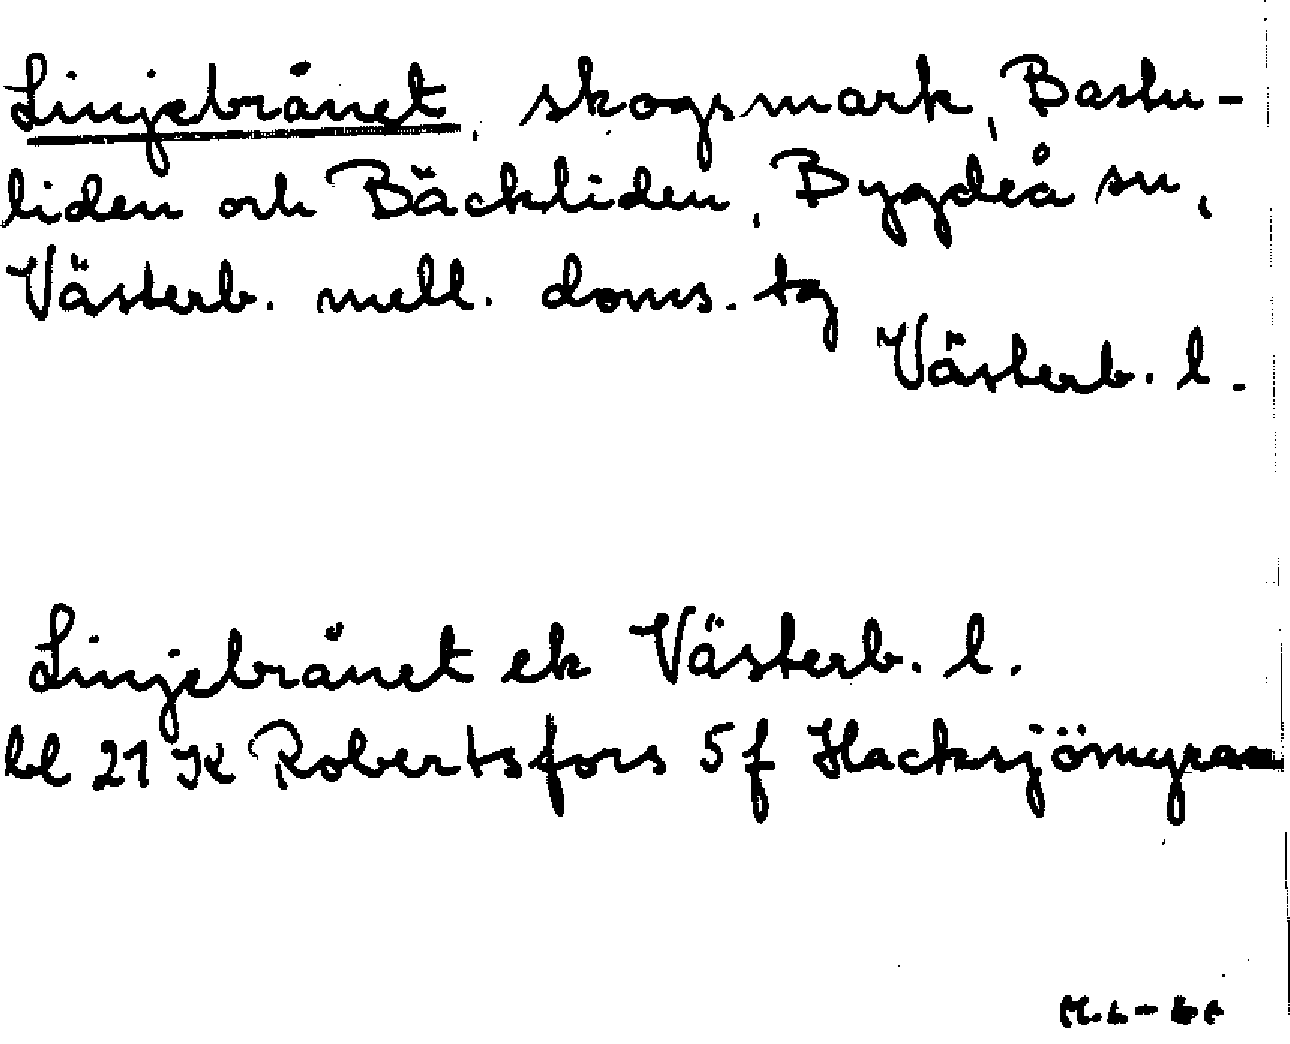 Linjebrånet, skogsmark, Bastu-
liden och Bäckliden, Bygdeå sn,
Västerb. mell. doms. tg
Västerb. l.
Linjebrånet ek Västerb. l.
bl 21 K Robertsfors 5 f Hacksjömyran